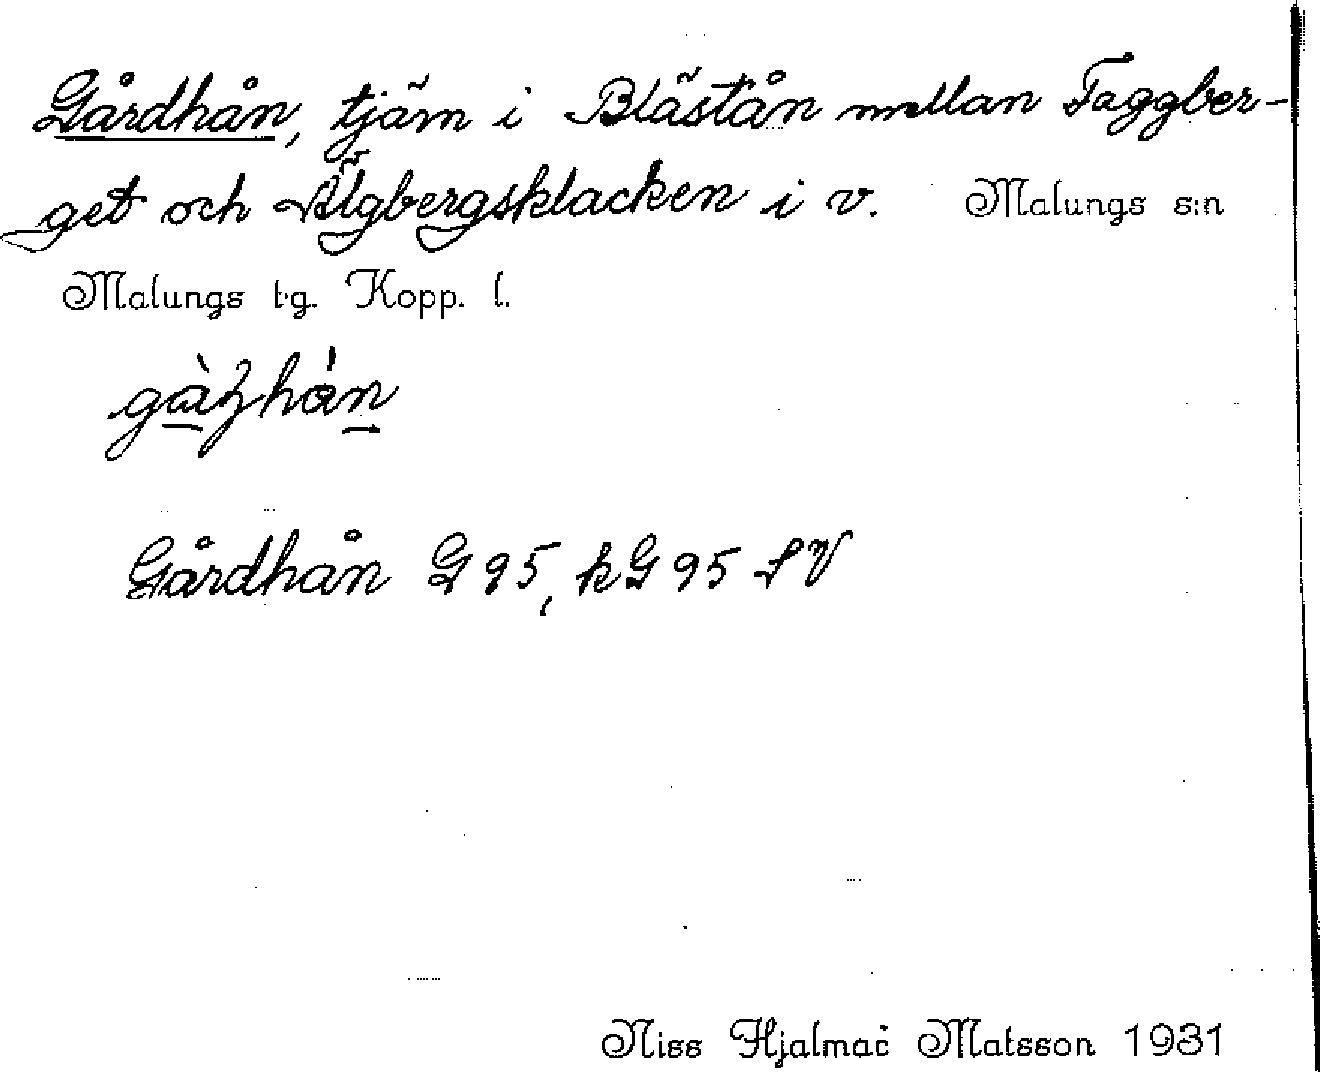 Gårdhån, tjärn i Blästån mellan Taggber-
get och Älgbergsklacken i v. Malungs s:n
Malungs tg. Kopp. l.
Gårdhån G 95, kG 95 SV
Niss Hjalmar Matsson 1931